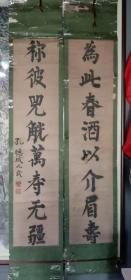 為此春酒以介眉壽
称彼兕觥萬壽无疆
孔德成